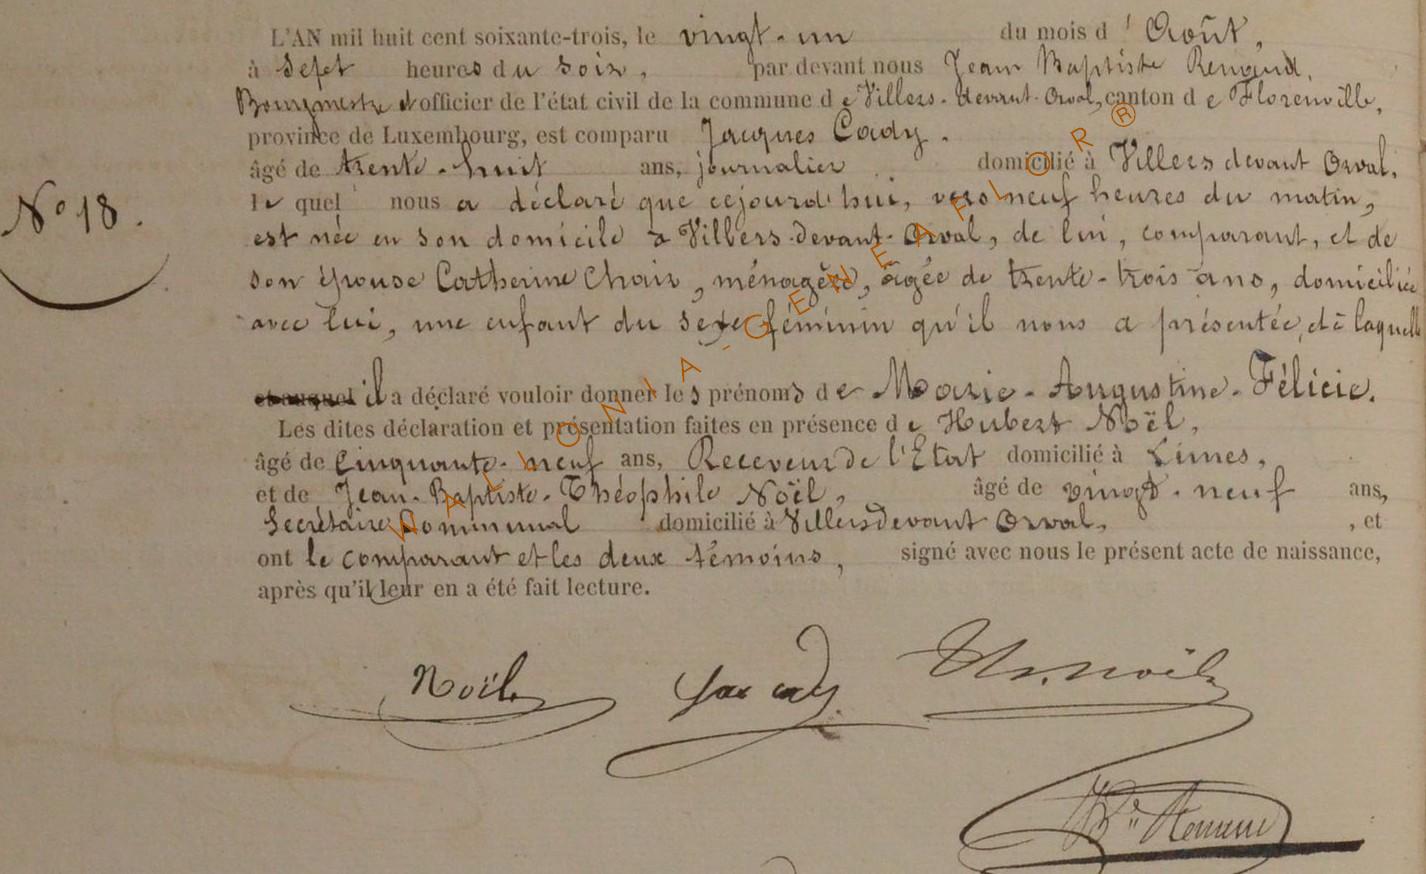 L'AN mil huit cent soixante-trois, le vingt-un du mois d'Août,
à sept heures du soir, par devant nous Jean Baptiste
Bourgmestre et officier de l'état civil de la commune de Villers-devant-Orval, canton de Florenville,
province de Luxembourg, est comparu Jacques Cady.
âgé de trente-huit ans, journalier domicilié à Villers devant Orval,
lequel nous a déclaré que cejourd'hui, vers neuf heures du matin,
N° 18.
est née en son domicile à Villers-devant-Orval, de lui, comparant, et de
son épouse Catherine, ménagère, âgée de trente-trois ans, domiciliée
avec lui, une enfant du sexe féminin qu'il nous a présentée, et à laquelle
et auquel il a déclaré vouloir donner les prénoms de Marie-Augustine-Félicie.
Les dites déclaration et présentation faites en présence de Hubert Noël,
âgé de Cinquante-neuf ans, Receveur de l'Etat domicilié à Limes,
et de Jean-Baptiste-Théophile Noël, âgé de vingt-neuf ans,
Secrétaire Communal domicilié à Villers devant Orval, , et
ont le comparant et les deux témoins, signé avec nous le présent acte de naissance,
après qu'il leur en a été fait lecture.
Noël Jac cady Noël
WALLONIA-GENEAFLOR®